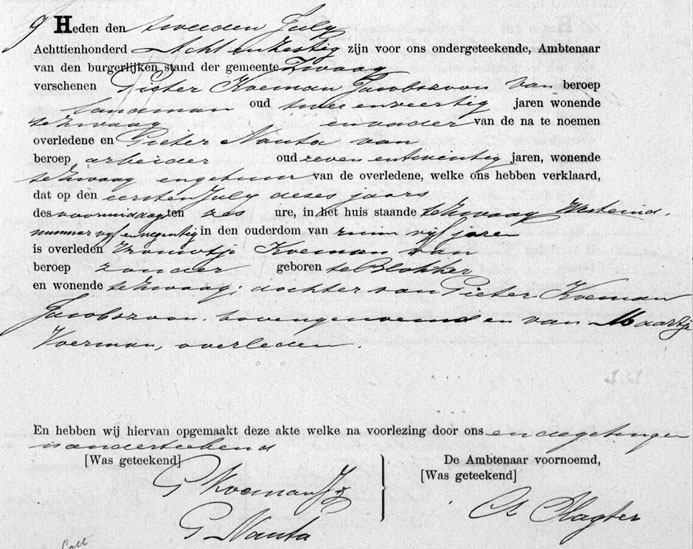 Heden den tweeden July
Achttienhonderd Acht en zestig zijn voor ons ondergeteekende, Ambtenaar
van den burgerlijken stand der gemeente Zwaag
verschenen Pieter Koeman Jacobszoon van beroep
landman oud twee en veertig jaren wonende
te Zwaag en vader van de na te noemen
overledene en Pieter Nauta van
beroep arbeider oud zeven en twintig jaren, wonende
te Zwaag en gebuur van de overledene, welke ons hebben verklaard,
dat op den eersten July dezes jaars
des voormiddag ten zes ure, in het huis staande te Zwaag Westeind
nummer vijf en negentig in den ouderdom van ruim vijf jaren
is overleden Koeman van
beroep zonder geboren te Blokker
en wonende te Zwaag; dochter van Pieter Koeman
Jacobszoon, bovengenoemd en van Maartje
Koerman, overleden.
En hebben wij hiervan opgemaakt deze akte welke na voorlezing door ons en de getuigen
is onderteekend
[Was geteekend]
De Ambtenaar voornoemd,
[Was geteekend]
P Koeman Jz
P Nauta
Slagter